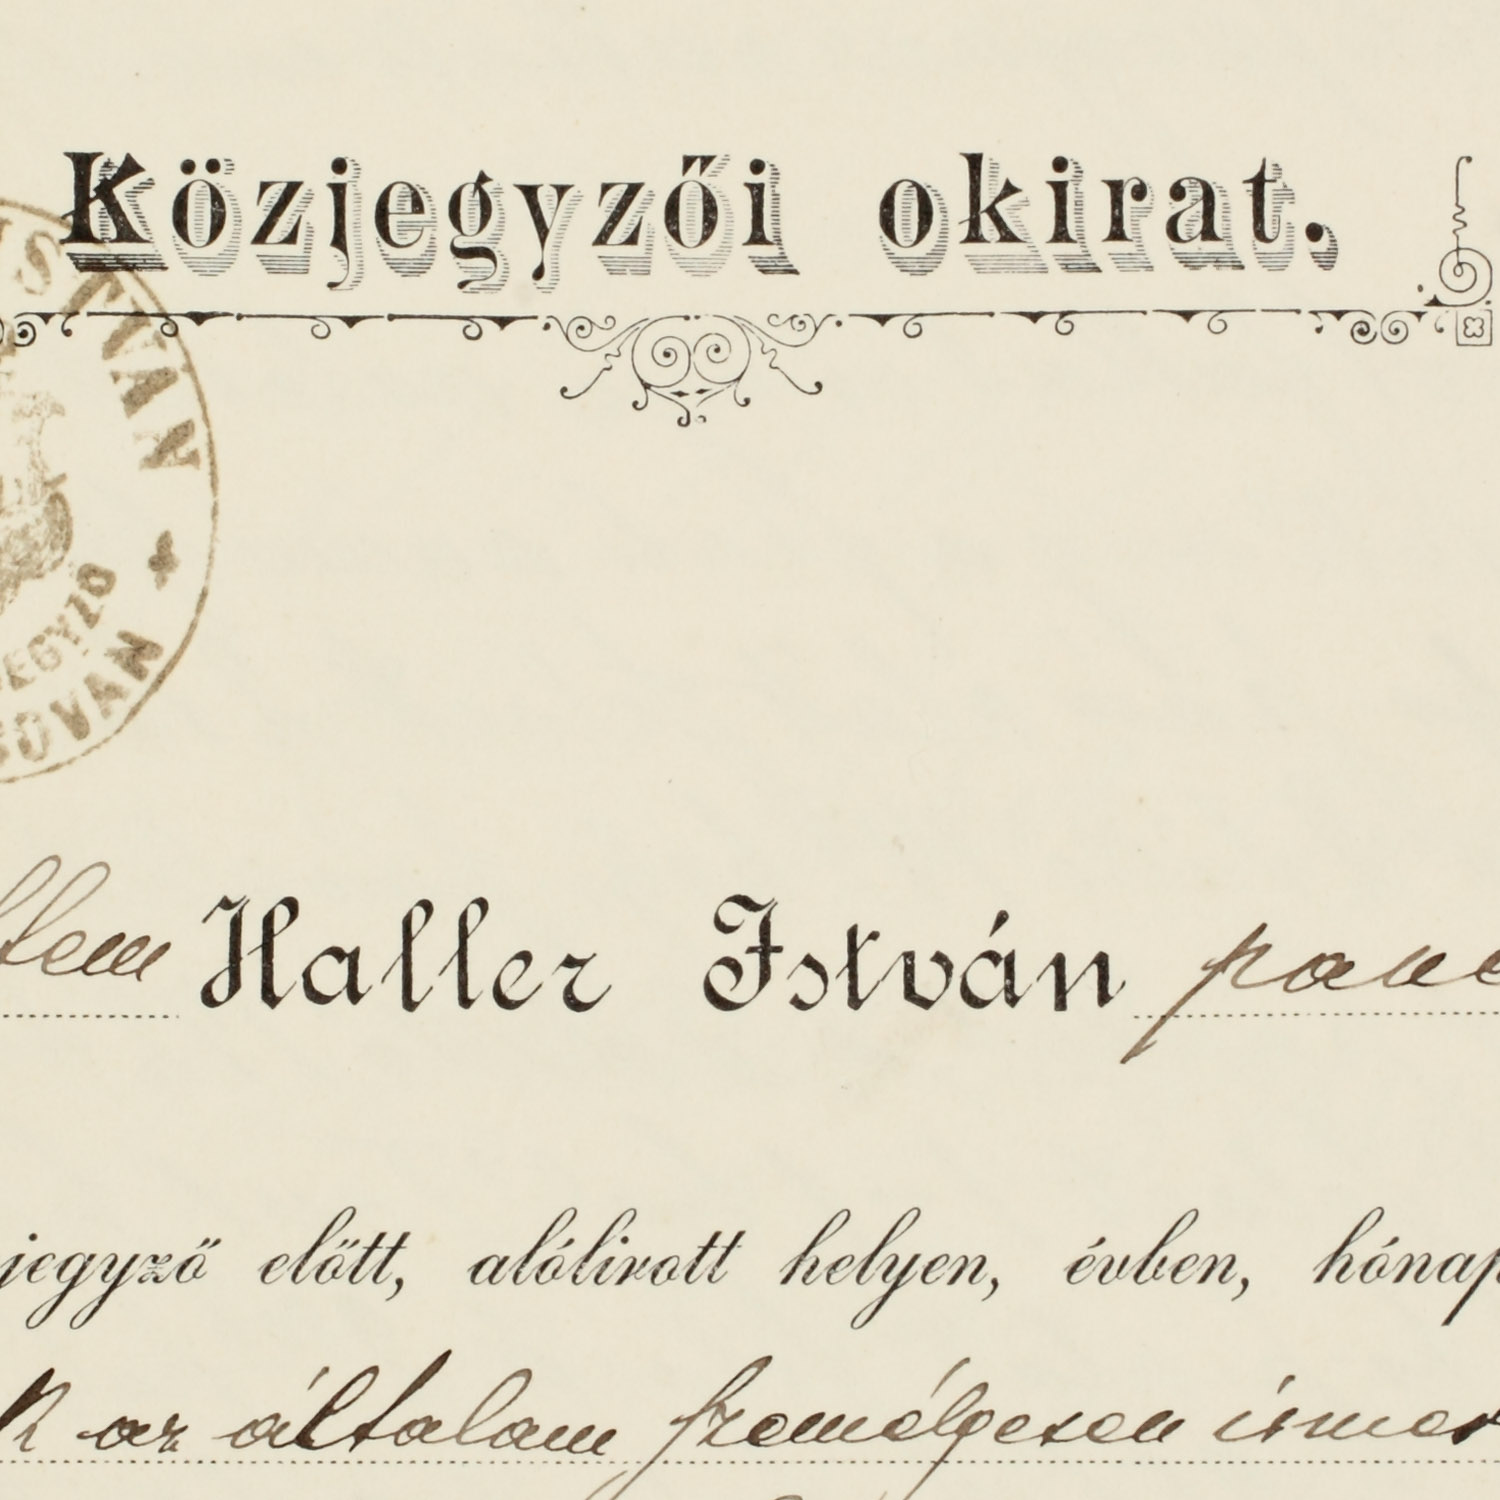 Közjegyzői okirat.
ISTVÁN
JEGYZŐ
SOVÁN
Haller István
jegyző előtt, alólirott helyen, évben, hónap
az általam személyesen ismer